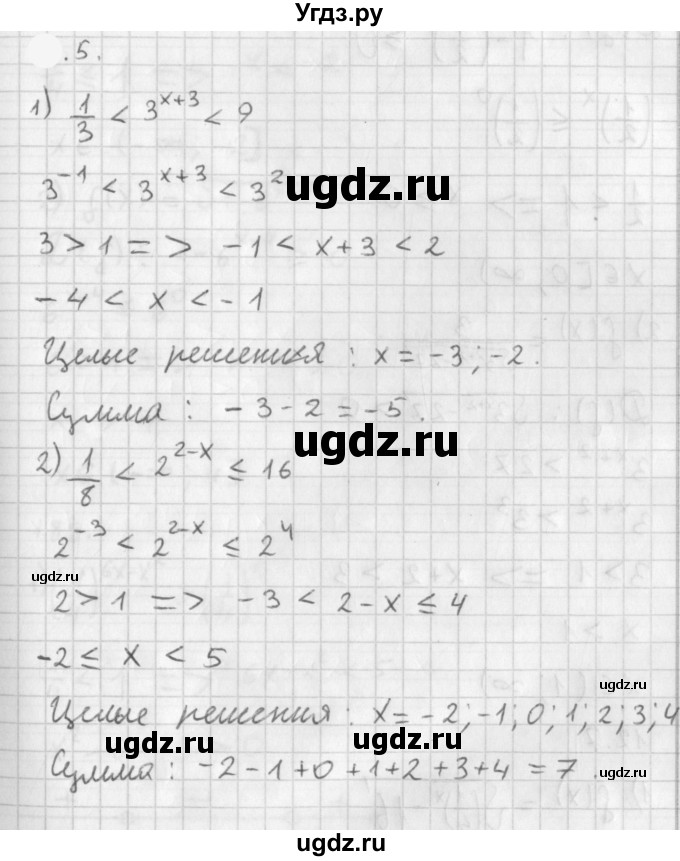 Угдз.ру
.5.
1) 1/3 < 3^(x+3) < 9
3^(-1) < 3^(x+3) < 3^2
ugdz.ru
3 > 1 => -1 < x+3 < 2
-4 < x < -1
Целые решения : x = -3 ; -2.
Сумма : -3-2 = -5.
ugdz.ru
2) 1/8 < 2^(2-x) ≤ 16
2^(-3) < 2^(2-x) ≤ 2^4
ugdz.ru
ugdz.ru
2 > 1 => -3 < 2-x ≤ 4
-2 ≤ x < 5
ugdz.ru
Целые решения : x = -2; -1; 0; 1; 2; 3; 4
ugdz.ru
ugdz.ru
Сумма : -2-1+0+1+2+3+4 = 7.
ugdz.ru
ugdz.ru